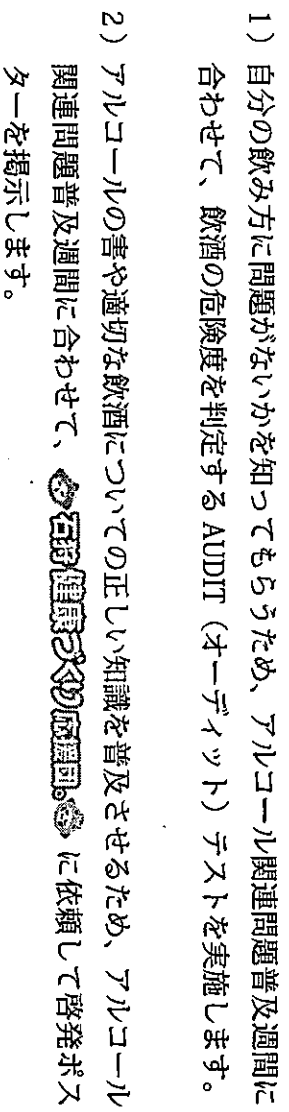 1）自分の飲み方に問題がないかを知ってもらうため、アルコール関連問題普及週間に
合わせて、飲酒の危険度を判定する AUDIT（オーディット）テストを実施します。
2）アルコールの害や適切な飲酒についての正しい知識を普及させるため、アルコール
関連問題普及週間に合わせて、石狩健康づくり応援団。に依頼して啓発ポス
ターを掲示します。